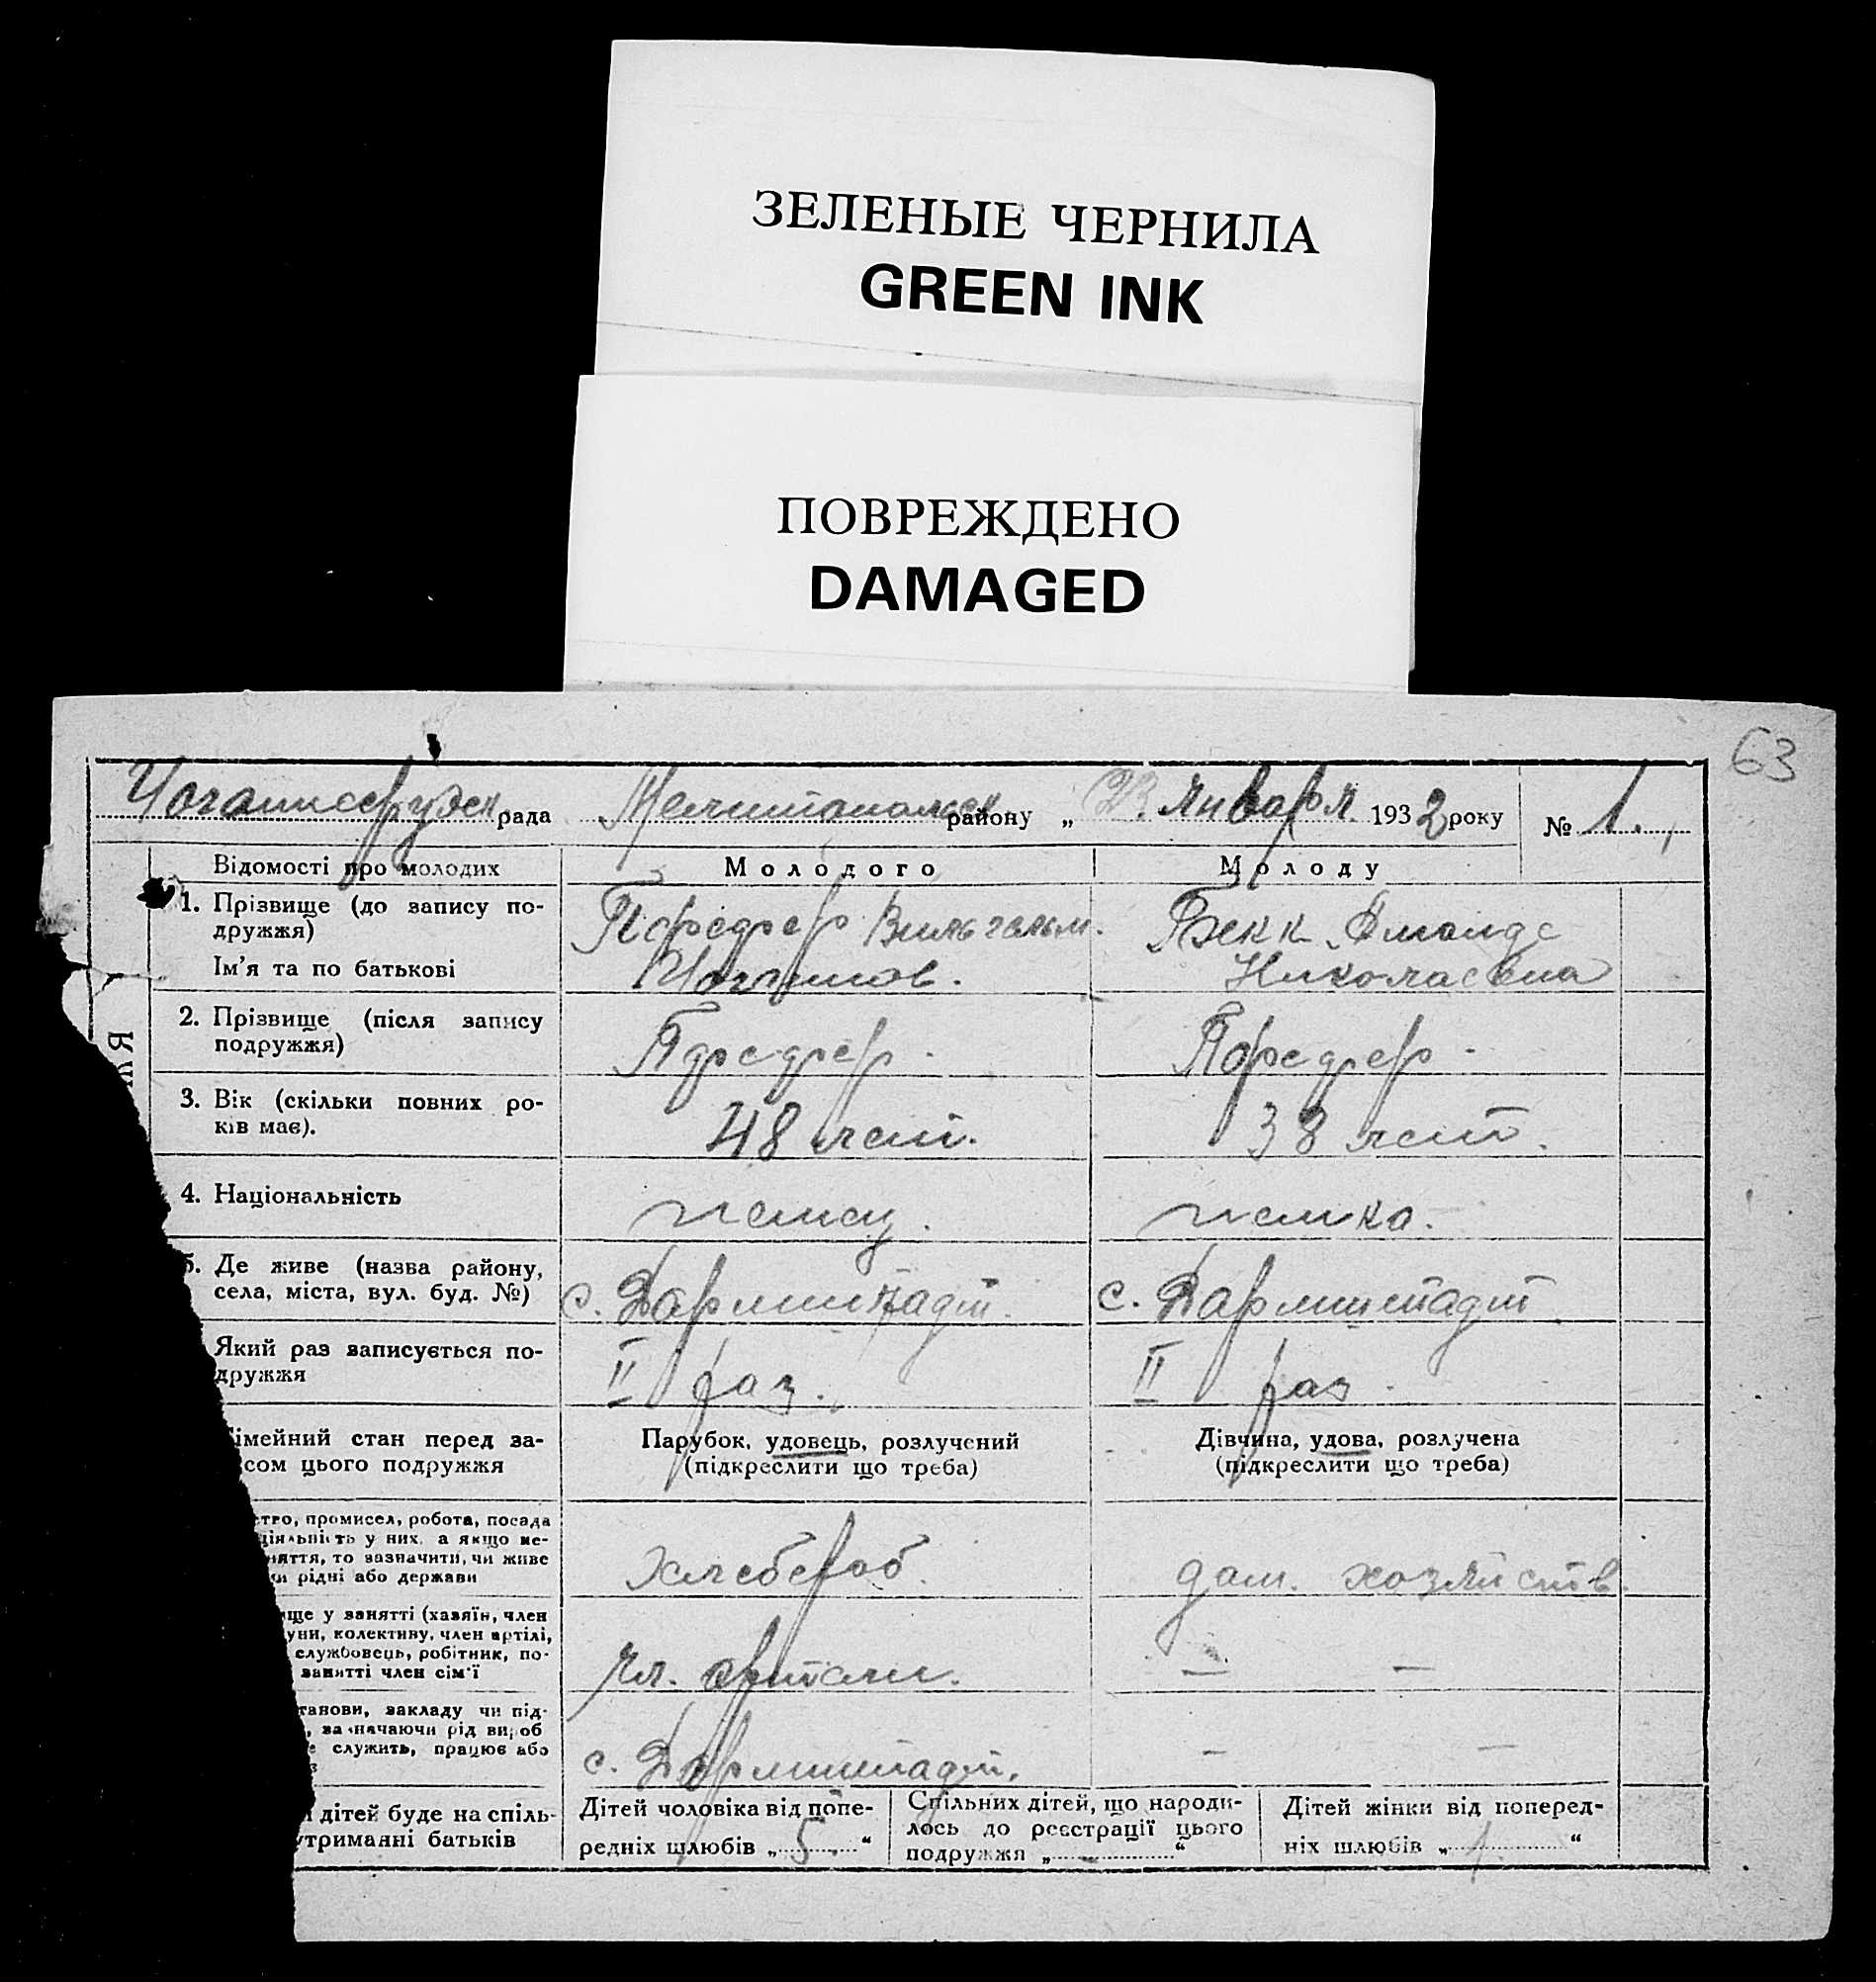 ЗЕЛЕНЫЕ ЧЕРНИЛА
GREEN INK
ПОВРЕЖДЕНО
DAMAGED
63
рада Мелитопольск району „ 23 января 1932 року № 1.
Відомості про молодих Молодого Молоду
1. Прізвище (до запису по- Вильгельм. Бекк
дружжя)
Ім'я та по батькові Николаевна
2. Прізвище (після запису
подружжя)
3. Вік (скільки повних ро- 48 лет. 38 лет.
ків має).
4. Національність немец. немка.
5. Де живе (назва району, с. Дармштадт. с. Дармштадт
села, міста, вул. буд. №)
Який раз записується по- II раз. II раз.
дружжя
імейний стан перед за- Парубок, удовець, розлучений Дівчина, удова, розлучена
сом цього подружжя (підкреслити що треба) (підкреслити що треба)
ство, промисел, робота, посада
ціяльність у них, а якщо не- хлебороб. дом. хозяйств.
няття, то зазначити, чи живе
рідні або держави
ище у занятті (хазяїн, член
уни, колективу, член артілі,
службовець, робітник, по- чл. артели. — —
занятті член сім'ї
танови, закладу чи під-
, зазначаючи рід вироб
служить, працює або с. Дармштадт. — —
дітей буде на спіль- Дітей чоловіка від попе- Спільних дітей, що народи- Дітей жінки від поперед-
утриманні батьків редніх шлюбів „ 5 “ лось до реєстрації цього ніх шлюбів „ 1 “
подружжя „ — “